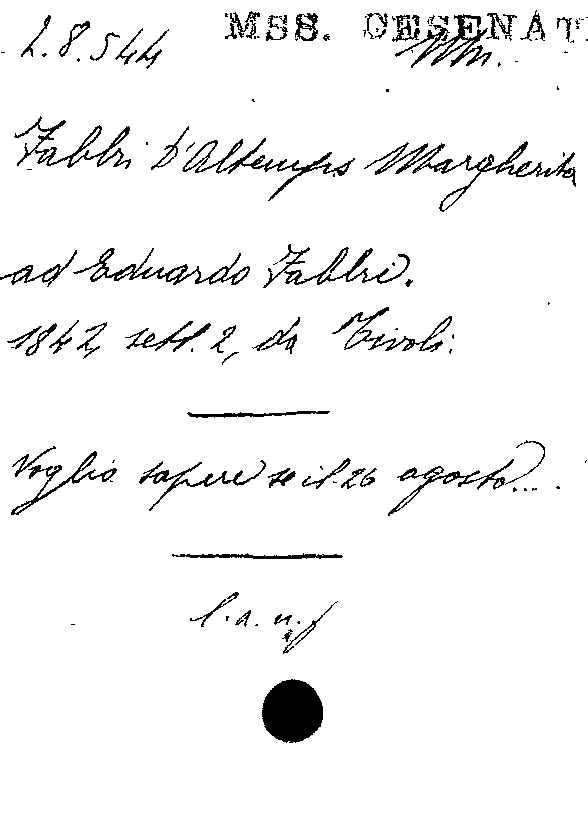 MSS. CESENAT
2.8.544
Fabbri D'Altemps Margherita
ad Eduardo Fabbri.
1842, sett. 2, da Tivoli.
Voglio sapere se il 26 agosto....
l.a.